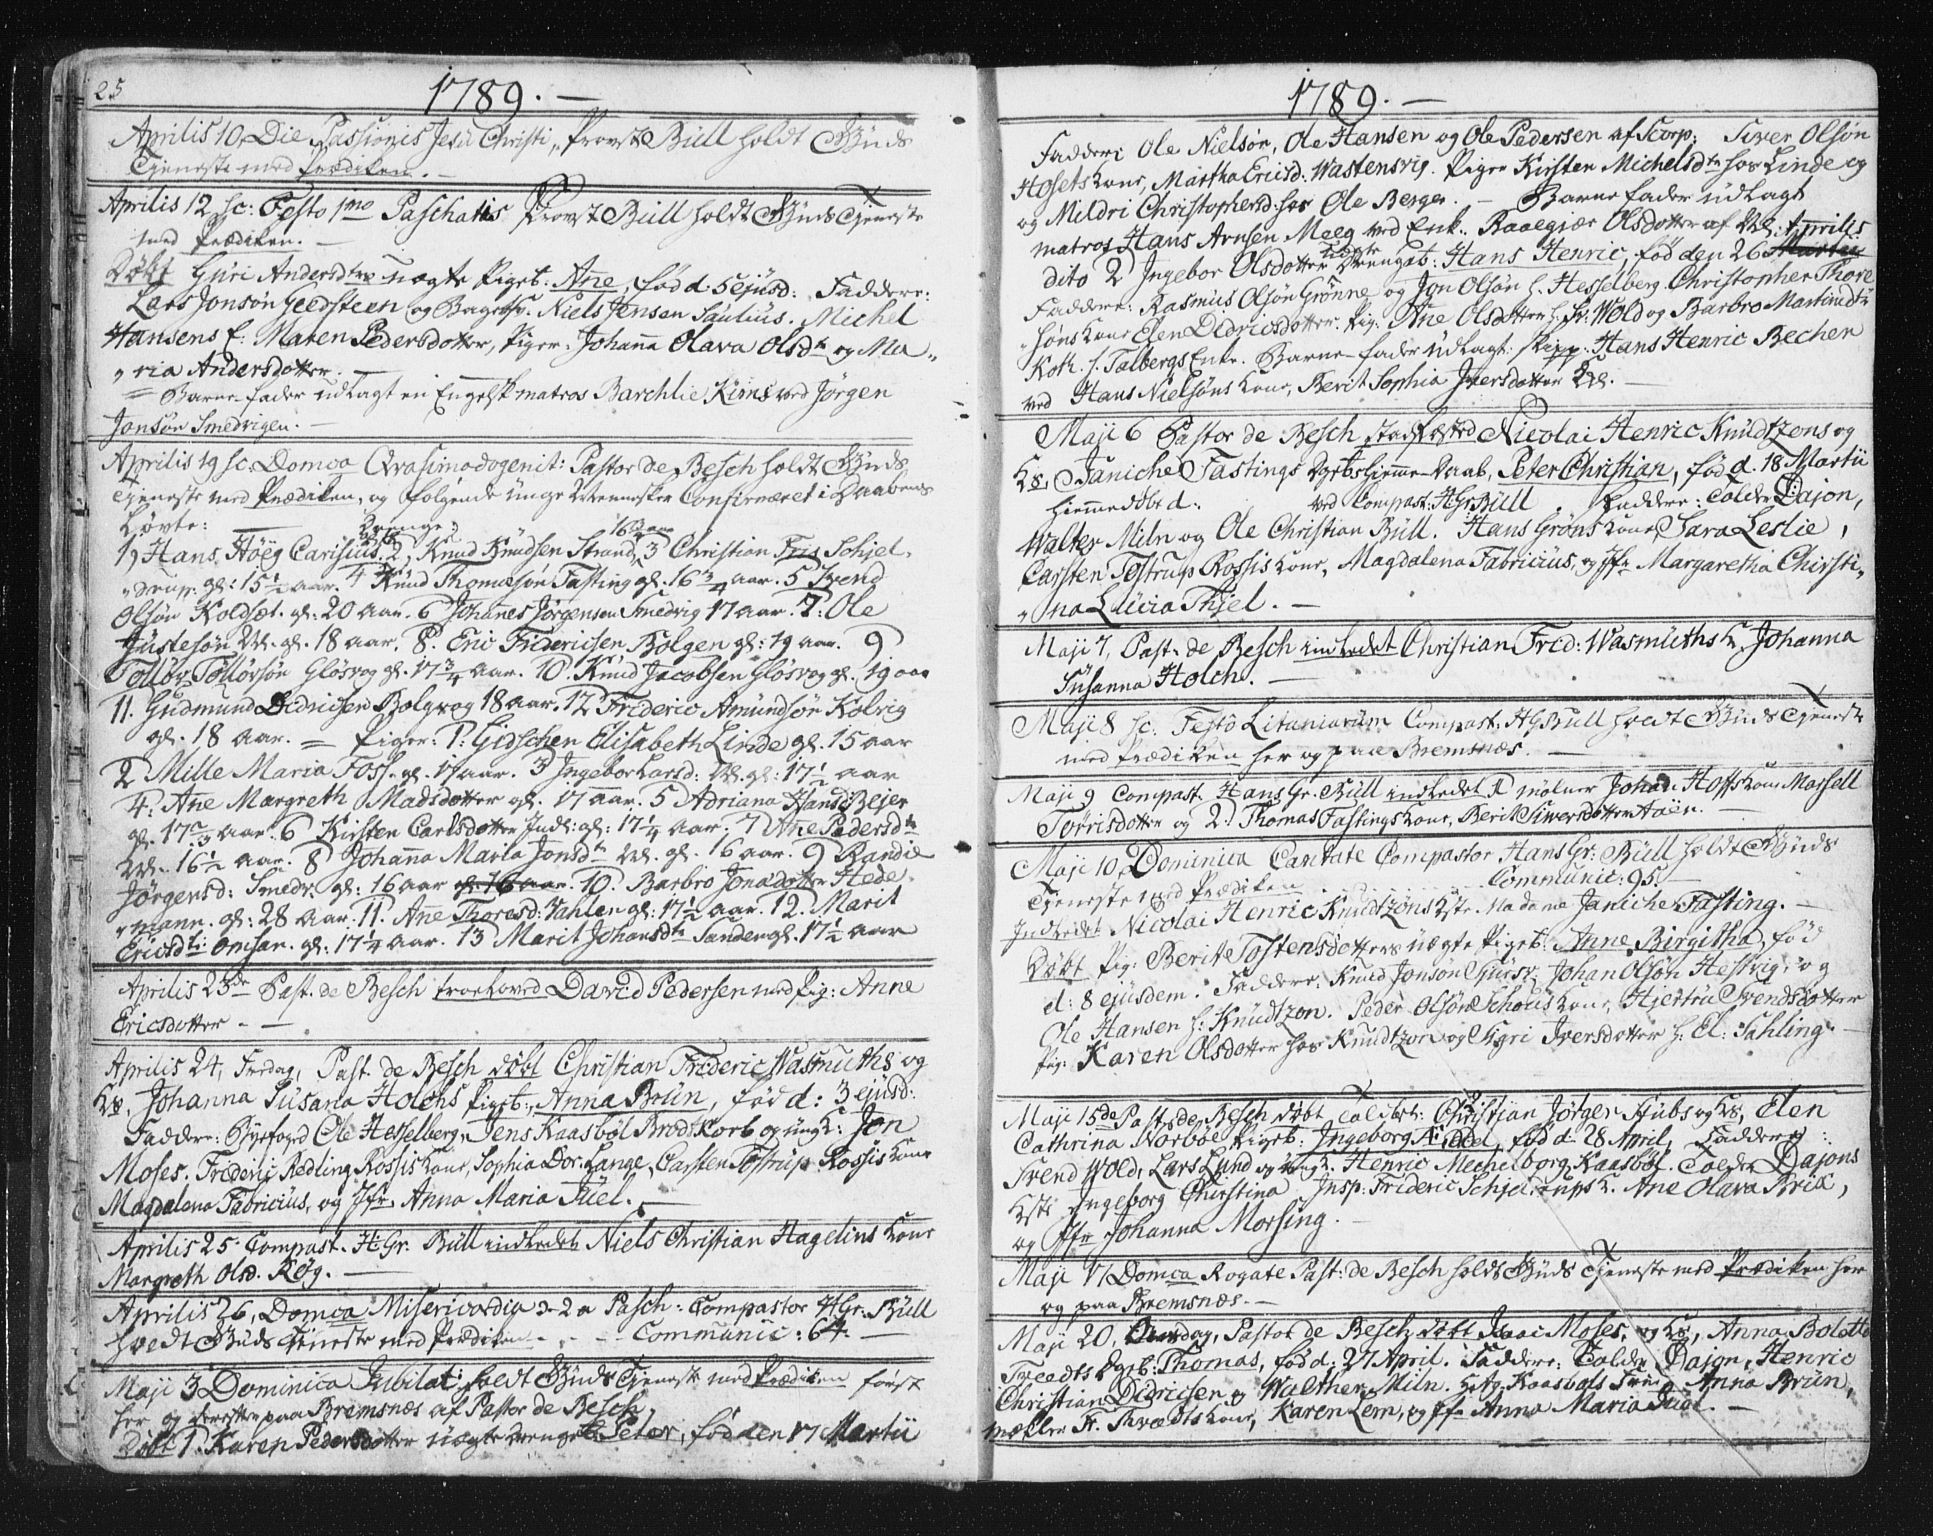 25
1789. —
Aprilis 10, Die Passionis Jesu Christi, Provst Bull holdt Guds
Tjeneste med Prædiken. —
Aprilis 12 sc: Festo 1mo Paschatis Provst Bull holdt Guds Tjeneste
med Prædiken. —
Døbt Guri Andersdtrs uægte Pigeb: Ane, fød d: 5 ejusd: Faddere:
Lars Jonsøn Geedsteen og Niels Jensen Saulius. Michel
Hansens E: Maren Pedersdotter, Piger: Johanna Olava Olsdtr og Ma„
„ria Andersdotter. —
= Barne-fader udlagt en Engelsk matros Barchlie Kims ved Jörgen
Jonsøn Smedvigen. —
Aprilis 19 sc. Domca Qvasimodogenit: Pastor de Besch holdt Guds
Tjeneste med Prædiken, og følgende unge Mennesker Confirmeret i Daabens
Løvte: — Drenge:
1, Hans Höeg Carisius. 2, Knud Knudsen Strand, 16 3/4 aar 3 Christian Fris Schjel„
„derup. gl: 15 1/2 aar. 4 Knud Thomæsøn Fasting gl. 16 3/4 aar. 5 Svend
Olsøn Koldsæt. gl: 20 aar. 6 Johannes Jørgensen Smedvig 17 aar. 7: Ole
Justesøn Vl. gl. 18 aar. 8. Eric Fridericsen Bolgen gl: 19 aar. 9
Tolløv Tolløvsøn Gløsvog gl. 17 3/4 aar. 10. Knud Jacobsen Gløsvog gl. 19 aar
11. Gudmund Didricsen Bolgvog 18 aar. 12 Frideric Amundsøn Kolvig
gl. 18 aar. = Piger: 1: Gidschen Elisabeth Linde gl. 15 aar
2 Mille Maria Foss. gl. 17 aar. 3 Ingebor Larsd: Vl. gl: 17 1/2 aar
4. Ane Margreth Madsdotter gl. 17 aar. 5 Adriana Hansd: Bejer
gl. 17 2/3 aar. 6 Kirsten Carlsdotter Indl: gl: 17 1/4 aar. 7 Ane Pedersdtr
Vl. 16 1/2 aar. 8 Johanna Maria Jonsdtr Vl. gl. 16 aar. 9 Randie
Jörgensd: Smedv. gl: 16 aar gl. 16 aar. 10. Barbro Jonædotter Hede„
„mann. gl: 28 aar. 11. Ane Thoresd: Dahlen gl: 17 1/2 aar. 12. Marit
Ericsdtr: Omsan. gl: 17 1/4 aar. 13 Marit Johansdtr Sanden gl. 17 1/2 aar
Aprilis 23de Past. de Besch troelovede David Pedersen med Pig: Anne
Ericsdotter. —
Aprilis 24, Fredag, Past. de Besch døbt Christian Frideric Wasmuths og
Ks. Johanna Susana Holchs Pigeb:, Anna Brun, fød d: 3 ejusd:
Faddere: Byefoged Ole Hesselberg, Jens Kaasbøl Brodtkorb og ungk: Jon
Moses. Frideric Redling Rossis Kone, Sophia Dor: Lange, Carsten Tostrup Rossis Kone
Magdalena Fabricius, og Jfr. Anna Maria Juel. —
Aprilis 25 Compast. H Gr. Bull indledet Niels Christian Hagelins Kone
Margreth Olsd. Røg. —
Aprilis 26, Domca Misericordia 2 a Pasch: Compastor H Gr. Bull
holdt Guds Tjeneste med Prædiken — Communic: 64. —
Maji 3 Dominica Jubilat: holdt Guds Tjeneste med Prædiken først
her og derefter paa Bremsnæs af Pastor de Besch.
Døbt 1. Karen Pedersdotter uægte Drengeb: Peter, fød den 17 Martii
1789. —
Fadder: Ole Nielsøn, Ole Hansen og Ole Pedersen af Scorp: Siver Olsøn
Hosets Kone, Martha Ericsd: Wastensvig. Piger Kirsten Michelsdtr hos Linde og
og Mildri Christophersd. hos Ole Berger. — Barnefader udlagt
matros Hans Arnsen Meeg ved Enk: Raaegiær Olsdotter af Vl: Aprilis
dito 2 Ingebor Olsdotter uægte Drengeb: Hans Henric, fød den 26 Martii
Faddere: Rasmus Olsøn Grønne og Jon Olsøn h. Hesselberg. Christopher Thore
„søns Kone Elen Didricsdotter. Pig: Ane Olsdotter h. Fr: Wold og Barbro Martinsdtr
Koth h. Talbergs Enke. Barne-fader udlagt: skipp: Hans Henric Bechen
ved Hans Nielsøns Kone, Berit Sophia Iversdotter Vl. —
Maji 6 Pastor de Besch stadfæsted Nicolai Henric Knudtzons og
Ks. Janiche Fastings Dgebs hiemme-Daab, Peter Christian, fød d. 18 Martii
hiemmedøbt d. ved Compast: H Gr Bull. Faddere: Tolder Dajon,
Walter Miln og Ole Christian Bull. Hans Grøns Kone Sara Leslie,
Carsten Tostrup Rossis Kone, Magdalena Fabricius, og Jfr. Margaretha Chirsti„
„na Lucia Thjel. —
Maji 7, Past. de Besch indledet Christian Frid: Wasmuths K. Johanna
Susanna Holch. —
Maji 8 sc. Festo Litaniarum Compast. H G Bull holdt Guds Tjeneste
med Prædiken her og paa Bremsnæs. —
Maji 9 Compast. Hans Gr: Bull indledet 1 mølner Johan Hoffs Kone Massell
Torrisdotter og 2. Thomas Fastings Kone, Berit Siwersdotter Aäen.
Maji 10, Dominica Cantate Compastor Hans Gr: Bull holdt Guds
Tjeneste med Prædiken Communic: 95. —
Indledet Nicolai Henric Knudtzons Kste. Madame Janiche Fasting. —
Døbt Pig: Berit Tostensdotters uægte Pigeb: Anne Birgitha, fød
d: 8 ejusdem. Faddere: Knud Jonsøn Gursv, Johan Olsøn Hestvig, og
Ole Hansen h: Knudtzon. Peder Olsøn Schous Kone, Hjertru Svendsdotter
Pig: Karen Olsdotter hos Knudtzon og Sygri Iversdotter h. El: Dahling. —
Maji 15de Past. de Besch døbt Toldbet: Christian Jörgen Stubs og Ks, Elen
Cathrina Norbøe Pigeb: Ingeborg, fød d: 28 April, Faddere:
Svend Wold, Lars Lund og ungk. Henric Mechelborg Kaasbøl. Tolder Dajons
Kste Ingeborg Chirstina Insp: Frideric Schjelderups K. Ane Olava Brix,
og Jfr Johanna Morsing. —
Maji 17 Domca Rogate Past: de Besch holdt Guds Tjeneste med Prædiken her
og paa Bremsnæs. —
Maji 20, Onsdag, Pastor de Besch døbt Isaac Moses, og Ks, Anna Bolette
Tvedts Dgeb: Thomas, fød d: 27 April. Faddere: Tolder Dajon, Henric
Christian Didricsen og Walther Miln. Kaasbøls Anna Brun,
Mækler Fr. Thvedts Kone, Karen Lem, og Jfr Anna Maria Juel. —